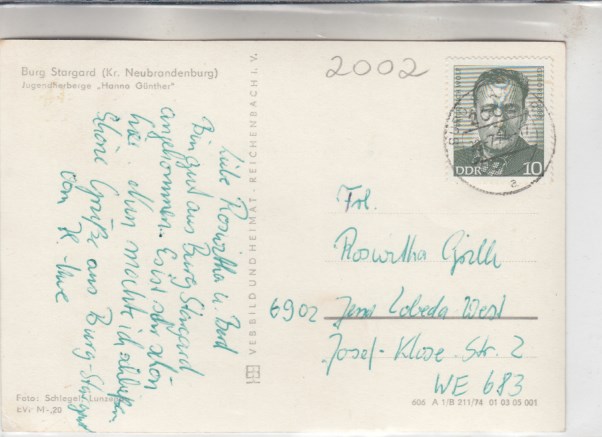 Burg Stargard (Kr. Neubrandenburg)
Jugendherberge „Hanno Günther"
Liebe Roswitha u. Bud
Bin gut aus Burg Stargard
angekommen. Es ist sehr schön
hier. Nun möchte ich
Schöne Grüße aus Burg-Stargard
vom K.-Uwe
Foto: Schlegel, Lunzenau
EVP M -,20
VEB BILD UND HEIMAT · REICHENBACH I. V.
2002
DDR 10
Frl.
Roswitha
6902 Jena Lobeda West
Josef-Klose-Str. 2
WE 683
606 A 1/B 211/74 01 03 05 001